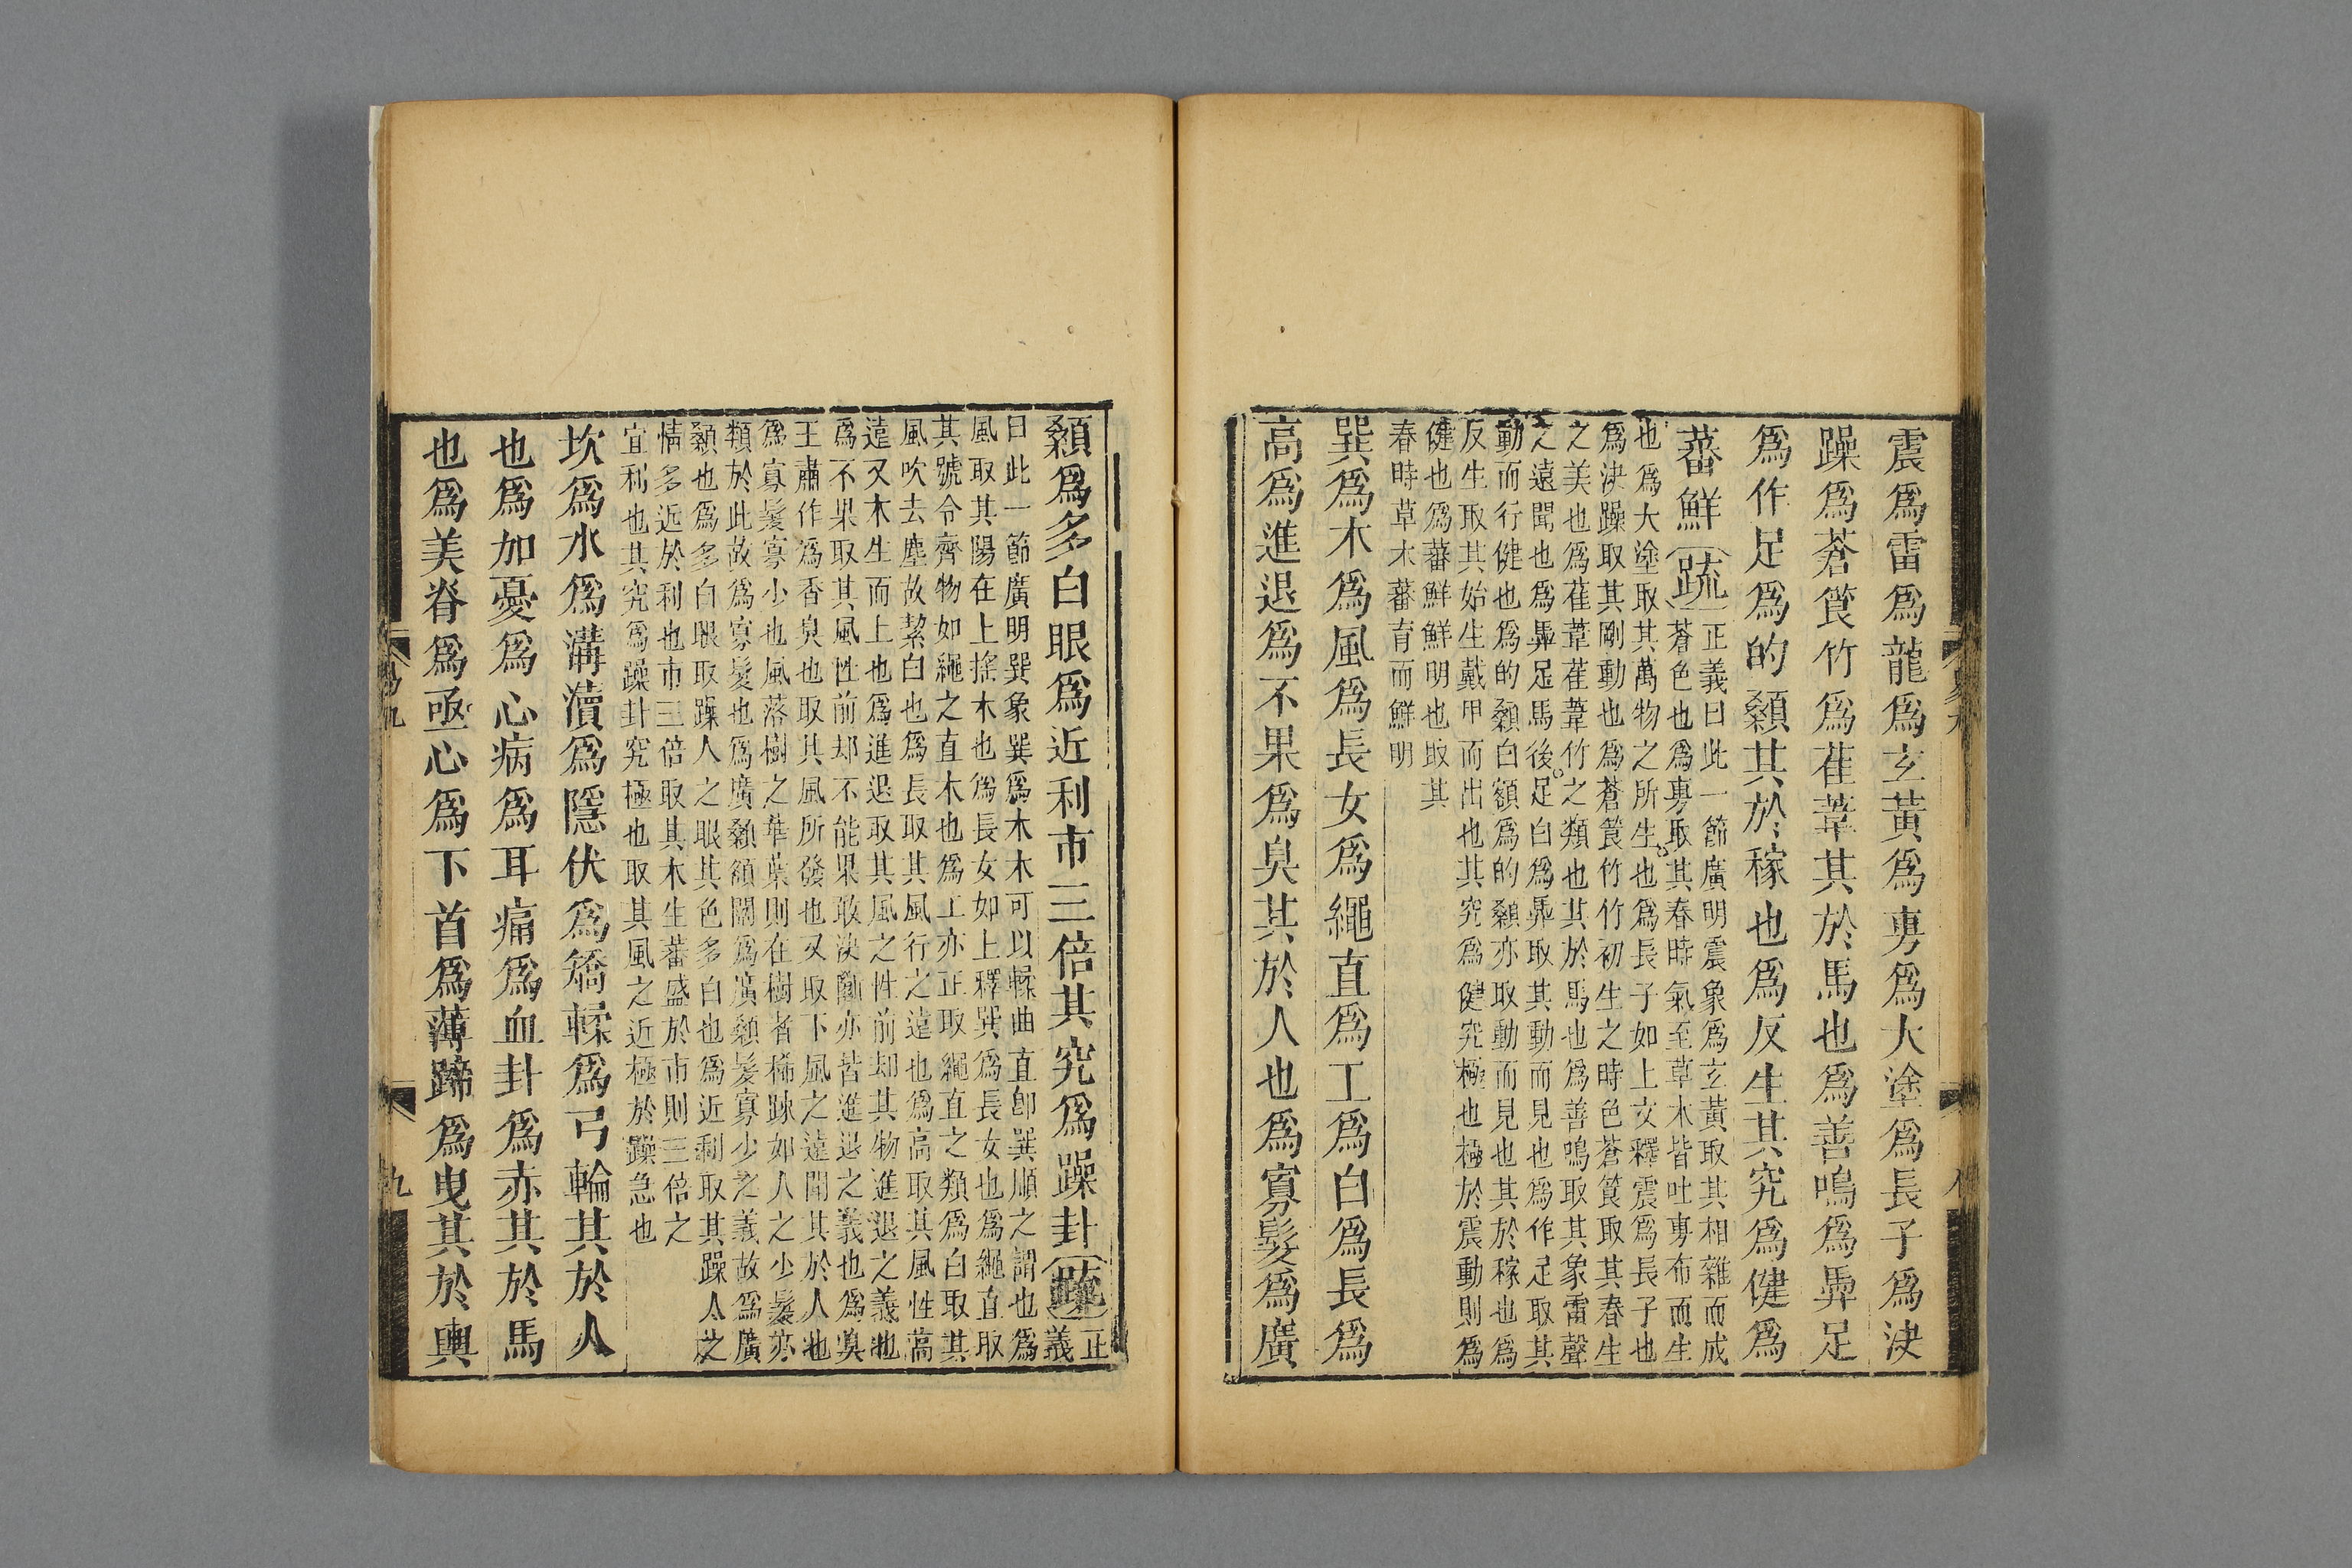 震爲雷爲龍爲玄黃爲旉爲大塗爲長子爲決
躁爲蒼筤竹爲萑葦其於馬也爲善鳴爲馵足
爲作足爲的顙其於稼也爲反生其究爲健爲
蕃鮮疏正義曰此一節廣明震象爲玄黃取其相雜而成
蒼色也爲旉取其春時氣至草木皆吐旉布而生
也爲大塗取其萬物之所生也爲長子如上文釋震爲長子也
爲決躁取其剛動也爲蒼筤竹竹初生之時色蒼筤取其春生
之美也爲萑葦萑葦竹之類也其於馬也爲善鳴取其象雷聲
之遠聞也爲馵足馬後足白爲馵取其動而見也爲作足取其
動而行健也爲的顙白額爲的顙亦取動而見也其於稼也爲
反生取其始生戴甲而出也其究爲健究極也極於震動則爲
健也爲蕃鮮鮮明也取其
春時草木蕃育而鮮明
巽爲木爲風爲長女爲繩直爲工爲白爲長爲
高爲進退爲不果爲臭其於人也爲寡髮爲廣
顙爲多白眼爲近利市三倍其究爲躁卦疏正義
曰此一節廣明巽象巽爲木木可以輮曲直卽巽順之謂也爲
風取其陽在上搖木也爲長女如上釋巽爲長女也爲繩直取
其號令齊物如繩之直木也爲工亦正取繩直之類爲白取其
風吹去塵故絜白也爲長取其風行之遠也爲高取其風性高
遠又木生而上也爲進退取其風之性前却其物進退之義也
爲不果取其風性前却不能果敢決斷亦皆進退之義也爲臭
王肅作爲香臭也取其風所發也又取下風之遠聞其於人也
爲寡髮寡少也風落樹之華葉則在樹者稀疎如人之少髮亦
類於此故爲寡髮也爲廣顙額闊爲廣顙髮寡少之義故爲廣
顙也爲多白眼取躁人之眼其色多白也爲近利取其躁人之
情多近於利也市三倍取其木生蕃盛於市則三倍之
宜利也其究爲躁卦究極也取其風之近極於躁急也
坎爲水爲溝瀆爲隱伏爲矯輮爲弓輪其於人
也爲加憂爲心病爲耳痛爲血卦爲赤其於馬
也爲美脊爲亟心爲下首爲薄蹄爲曳其於輿
易九
九